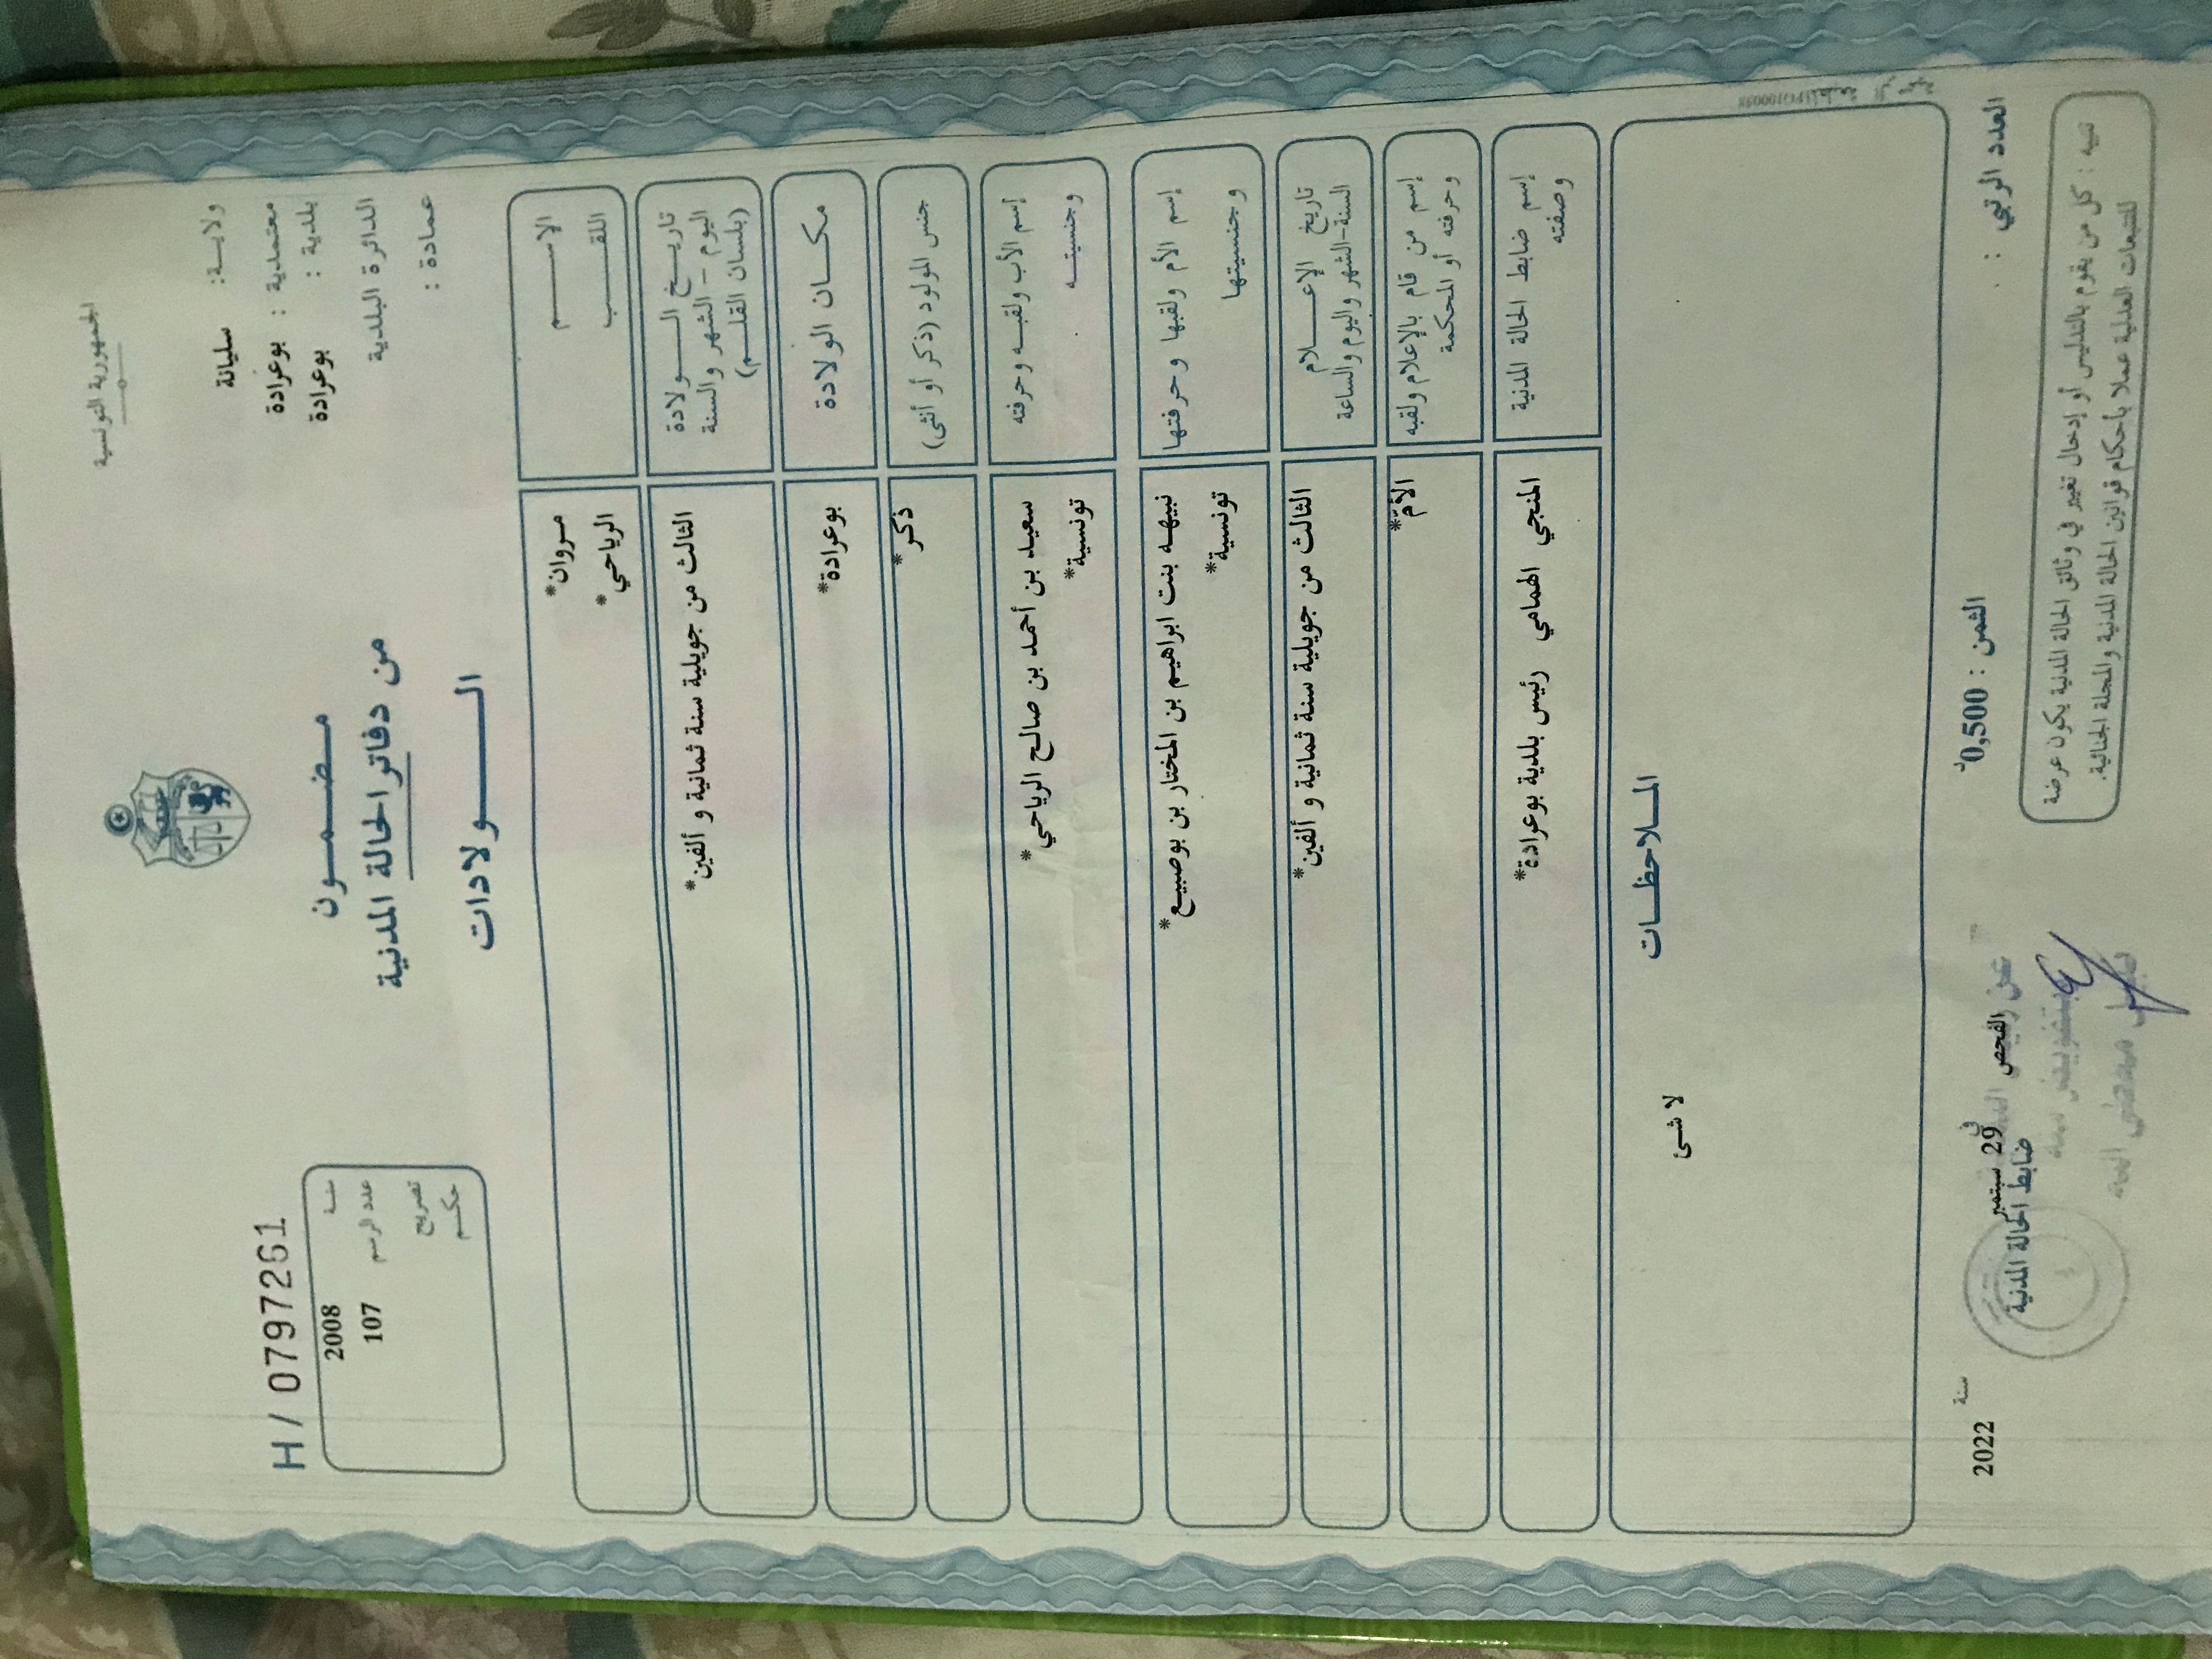 الجمهورية التونسية
ولايـة: سليانة
معتمدية : بوعرادة
بلدية : بوعرادة
الدائرة البلدية
عمادة :
مـضـمـون
من دفاتر الحالة المدنية
الـولادات
H / 0797261
سنـة 2008
عدد الرسم 107
تصريح
حكـم
الإسـم مـروان*
اللقـب الرياحي*
تاريـخ الـولادة
اليوم - الشهر والسنة
(بلسان القلـم)
الثالث من جويلية سنة ثمانية و ألفين*
مكـان الولادة بوعرادة*
جنس المولود (ذكر أو أنثى) ذكر*
إسم الأب ولقبـه وحرفته سعيد بن أحمد بن صالح الرياحي*
وجنسيتـه تونسية*
إسم الأم ولقبها وحرفتها نبيهه بنت ابراهيم بن المختار بن بوصبيع*
وجنسيتها تونسية*
تاريخ الإعـلام
السنة-الشهر واليوم والساعة
الثالث من جويلية سنة ثمانية و ألفين*
إسم من قام بالإعلام ولقبه
وحرفته أو المحكمة
الأم*
إسم ضابط الحالة المدنية
وصفته
المنجي الهمامي رئيس بلدية بوعرادة*
المـلاحظـات
لا شئ
العدد الرتبي :
الثمن : 0,500د
الفحص في 29 سبتمبر سنة 2022
ضابط الحالة المدنية
تنبيه : كل من يقوم بالتدليس أو إدخال تغيير في وثائق الحالة المدنية يكون عرضة
للتتبعات العدلية عملا بأحكام قوانين الحالة المدنية والمجلة الجنائية.